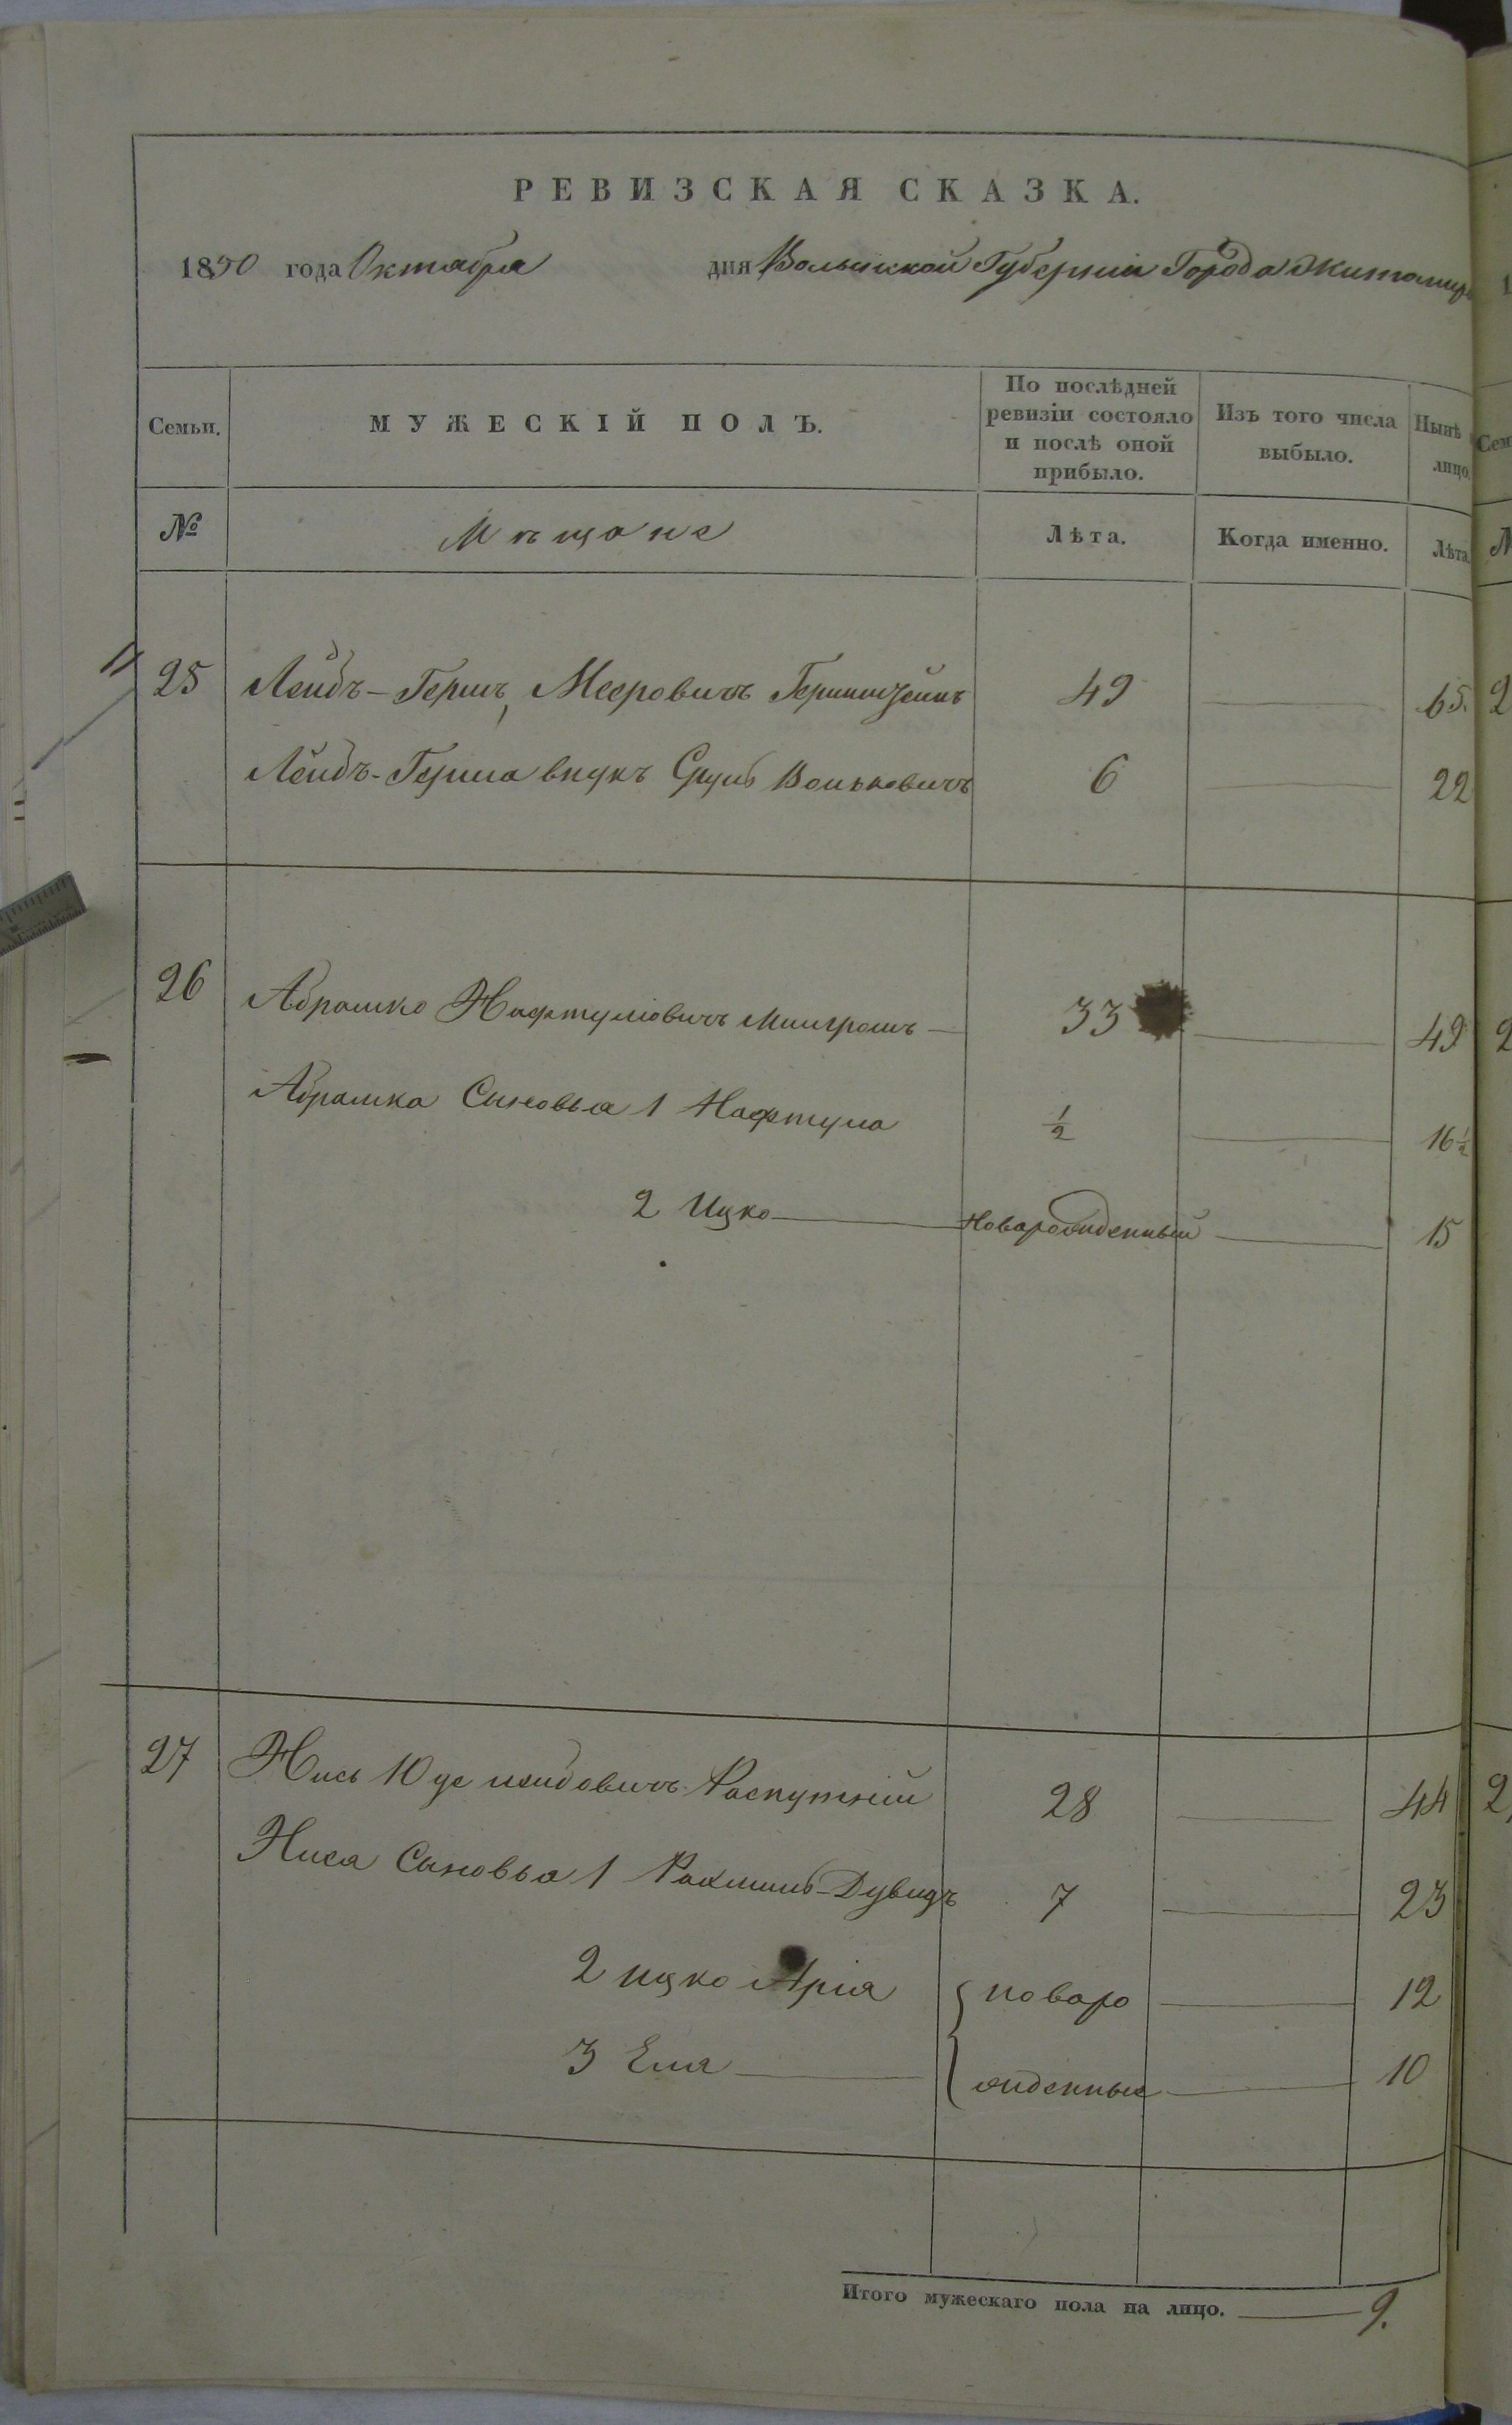 РЕВИЗСКАЯ СКАЗКА.
1850 года Октабра дня Волынской Губерніи Города Житомира
Семьи. МУЖЕСКІЙ ПОЛЪ. По послѣдней ревизіи состояло и послѣ оной прибыло. Изъ того числа выбыло. Нынѣ лицо.
№ Мѣщане Лѣта. Когда именно. Лѣта.
25 Лейбъ-Гершъ Мееровичъ 49 65.
Лейбъ-Герша внукъ Сруль Вольковичъ 6 22
26 Абрамко Нафтуловичъ Мильгромъ 33 49
Абрамка Сыновья 1 Нафтула ½ 16½
2 Ицко Новарожденный 15
27 Нись Юде Лейбовичъ Распутній 28 44
Нися Сыновья 1 Рахмиль-Дувидъ 7 23
2 ицко Арія новаро 12
3 Еля жденные 10
Итого мужескаго пола на лицо. 9.